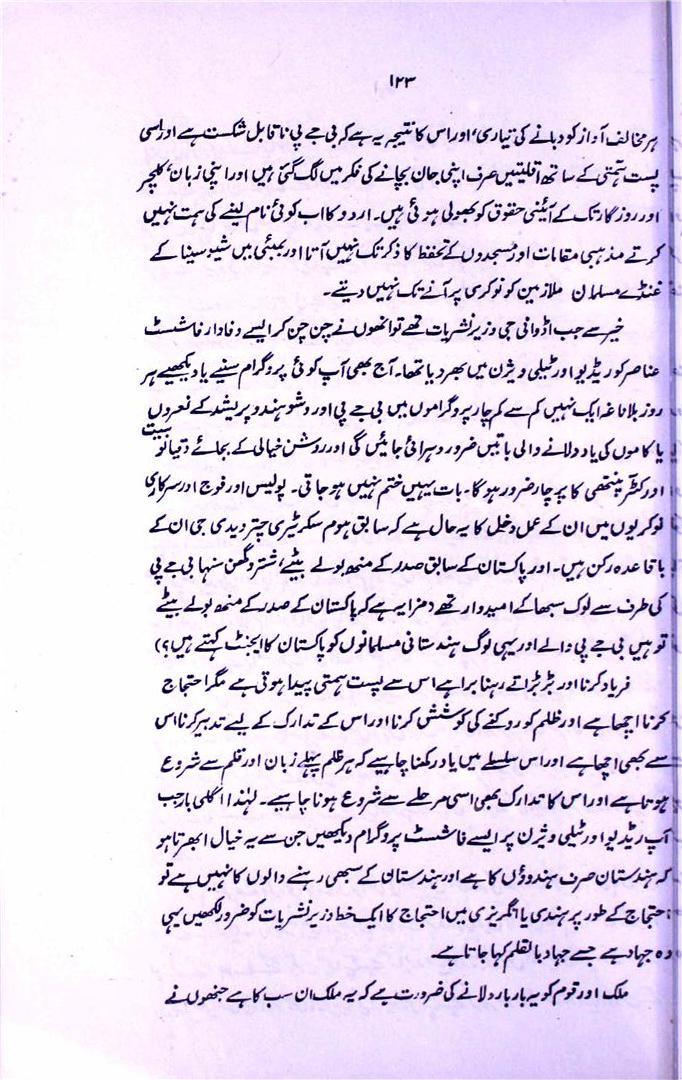 ۱۲۳
ہر مخالف آواز کو دبانے کی تیاری، اور اس کا نتیجہ یہ ہے کہ بی جے پی ناقابل شکست ہے اور اسی
پست ہمتی کے ساتھ اقلیتیں صرف اپنی جان بچانے کی فکر میں لگ گئی ہیں اور اپنی زبان، کلچر
اور روزگار تک کے آئینی حقوق کو بھولی ہوئی ہیں۔ اردو کا اب کوئی نام لینے کی ہمت نہیں
کرتے مذہبی مقامات اور مسجدوں کے تحفظ کا ذکر تک نہیں آتا اور بمبئی میں شیو سینا کے
غنڈے مسلمان ملازمین کو نوکری پر آنے تک نہیں دیتے۔
خیر سے جب اڈوانی جی وزیر نشریات تھے تو انھوں نے چن چن کر ایسے وفادار فاشسٹ
عناصر کو ریڈیو اور ٹیلی ویژن میں بھر دیا تھا۔ آج بھی آپ کوئی پروگرام سنیے یا دیکھیے ہر
روز بلاناغہ ایک نہیں کم سے کم چار پروگراموں میں بی جے پی اور وشو ہندو پریشد کے نعروں
یا کاموں کی یاد دلانے والی باتیں ضرور دہرائی جائیں گی اور روشن خیالی کے بجائے دقیانوسیت
اور کٹر پنتھی کا پرچار ضرور ہوگا۔ بات یہیں ختم نہیں ہو جاتی۔ پولیس اور فوج اور سرکاری
نوکریوں میں ان کے عمل دخل کا یہ حال ہے کہ سابق ہوم سکریٹری چترویدی جی ان کے
باقاعدہ رکن ہیں۔ اور پاکستان کے سابق صدر کے منھ بولے بیٹے، شتروگھن سنہا بی جے پی
کی طرف سے لوک سبھا کے امیدوار تھے (مزا یہ ہے کہ پاکستان کے صدر کے منھ بولے بیٹے
تو ہیں بی جے پی والے اور یہی لوگ ہندستانی مسلمانوں کو پاکستان کا ایجنٹ کہتے ہیں؟)
فریاد کرنا اور بڑبڑاتے رہنا برا ہے اس سے پست ہمتی پیدا ہوتی ہے مگر احتجاج
کرنا اچھا ہے اور ظلم کو روکنے کی کوشش کرنا اور اس کے تدارک کے لیے تدبیر کرنا اس
سے بھی اچھا ہے اور اس سلسلے میں یاد رکھنا چاہیے کہ ہر ظلم پہلے زبان اور قلم سے شروع
ہوتا ہے اور اس کا تدارک بھی اسی مرحلے سے شروع ہونا چاہیے۔ لہٰذا اگلی بار جب
آپ ریڈیو اور ٹیلی ویژن پر ایسے فاشسٹ پروگرام دیکھیں جن سے یہ خیال ابھرتا ہو
کہ ہندستان صرف ہندوؤں کا ہے اور ہندستان کے سبھی رہنے والوں کا نہیں ہے تو
احتجاج کے طور پر ہندی یا انگریزی میں احتجاج کا ایک خط وزیر نشریات کو ضرور لکھیں یہی
وہ جہاد ہے جسے جہاد بالقلم کہا جاتا ہے۔
ملک اور قوم کو یہ بار بار دلانے کی ضرورت ہے کہ یہ ملک ان سب کا ہے جنھوں نے